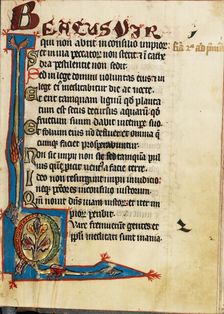 BEATUS VIR
qui non abiit in consilio impior
et in via peccatorum non stetit: et in cathedra
pestilentie non sedit
Sed in lege domini voluntas eius: et in
lege eius meditabitur die ac nocte
Et erit tamquam lignum quod plantatum
est secus decursus aquarum: quod
fructum suum dabit in tempore suo
Et folium eius non defluet: et omnia
quecumque faciet prosperabuntur
Non sic impii non sic: sed tamquam pul
vis quem proicit ventus a facie terre
Ideo non resurgunt impii in iudicio:
neque peccatores in consilio iustorum
Quoniam novit dominus viam iustorum: et iter im
piorum peribit
Quare fremuerunt gentes: et
populi meditati sunt inania